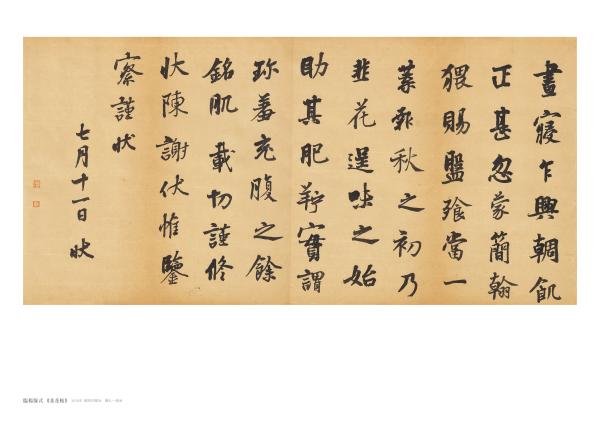 晝寢乍興輖飢
正甚忽蒙簡翰
猥賜盤飱當一
葉報秋之初乃
韭花逞味之始
助其肥羜實謂
珍羞充腹之餘
銘肌載切謹修
狀陳謝伏惟鑒
察謹狀
七月十一日 狀
臨楊凝式《韭花帖》